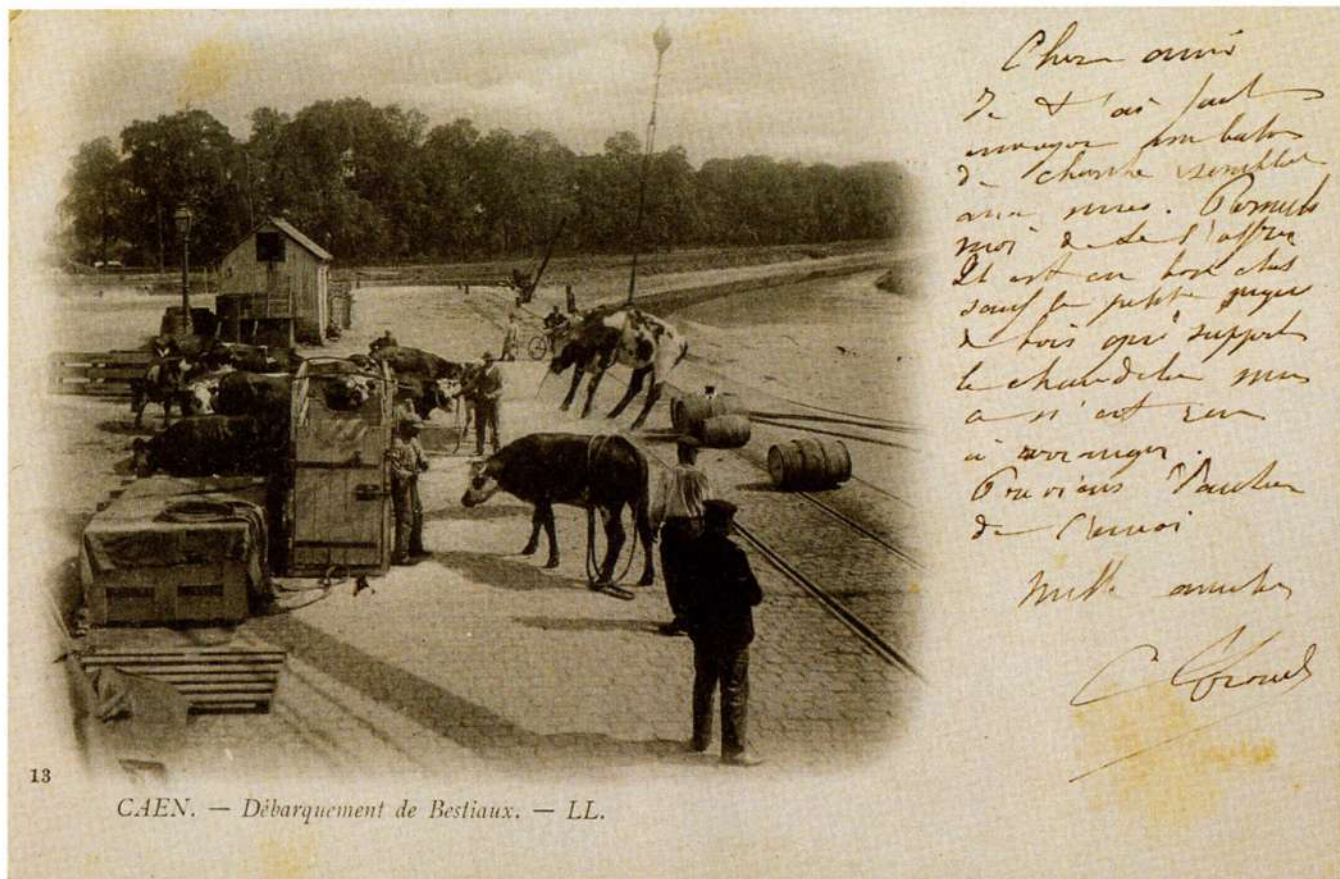 Cher ami
Je t'ai fait
envoyer un bateau
de chasse semblable
aux miens. Permets
moi de te l'offrir
Il est en bon état
sauf la petite
de bois qui supporte
la chandelle mais
ce n'est rien
à arranger.
Préviens
de l'envoi
Mille amitiés
C
13
CAEN. — Débarquement de Bestiaux. — LL.